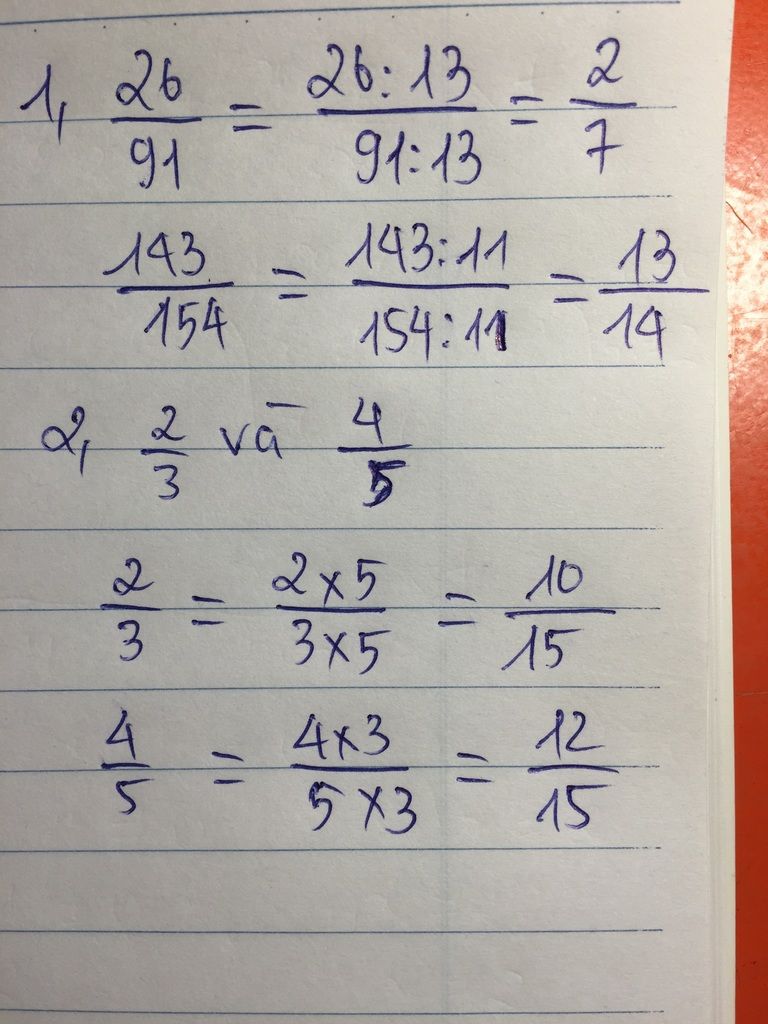 1, 26/91 = 26:13/91:13 = 2/7
143/154 = 143:11/154:11 = 13/14
2, 2/3 và 4/5
2/3 = 2×5/3×5 = 10/15
4/5 = 4×3/5×3 = 12/15